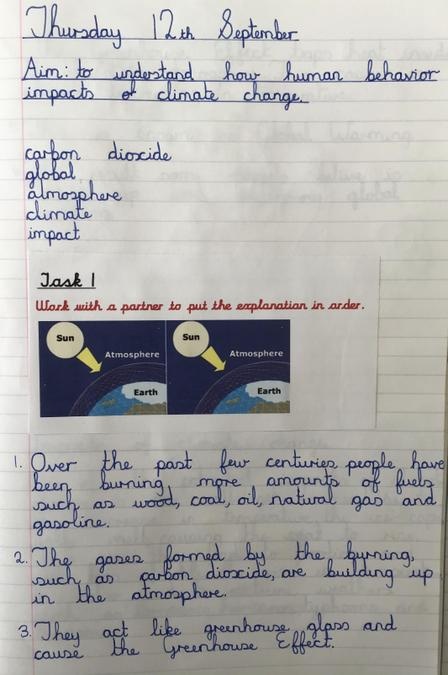 Thursday 12th September
Aim: to understand how human behavior
impacts of climate change.
carbon dioxide
global
atmosphere
climate
impact
Task 1
Work with a partner to put the explanation in order.
Sun
Atmosphere
Earth
Sun
Atmosphere
Earth
1. Over the past few centuries people have
been burning more amounts of fuels
such as wood, coal, oil, natural gas and
gasoline.
2. The gases formed by the burning,
such as carbon dioxide, are building up
in the atmosphere.
3. They act like greenhouse glass and
cause the Greenhouse Effect.